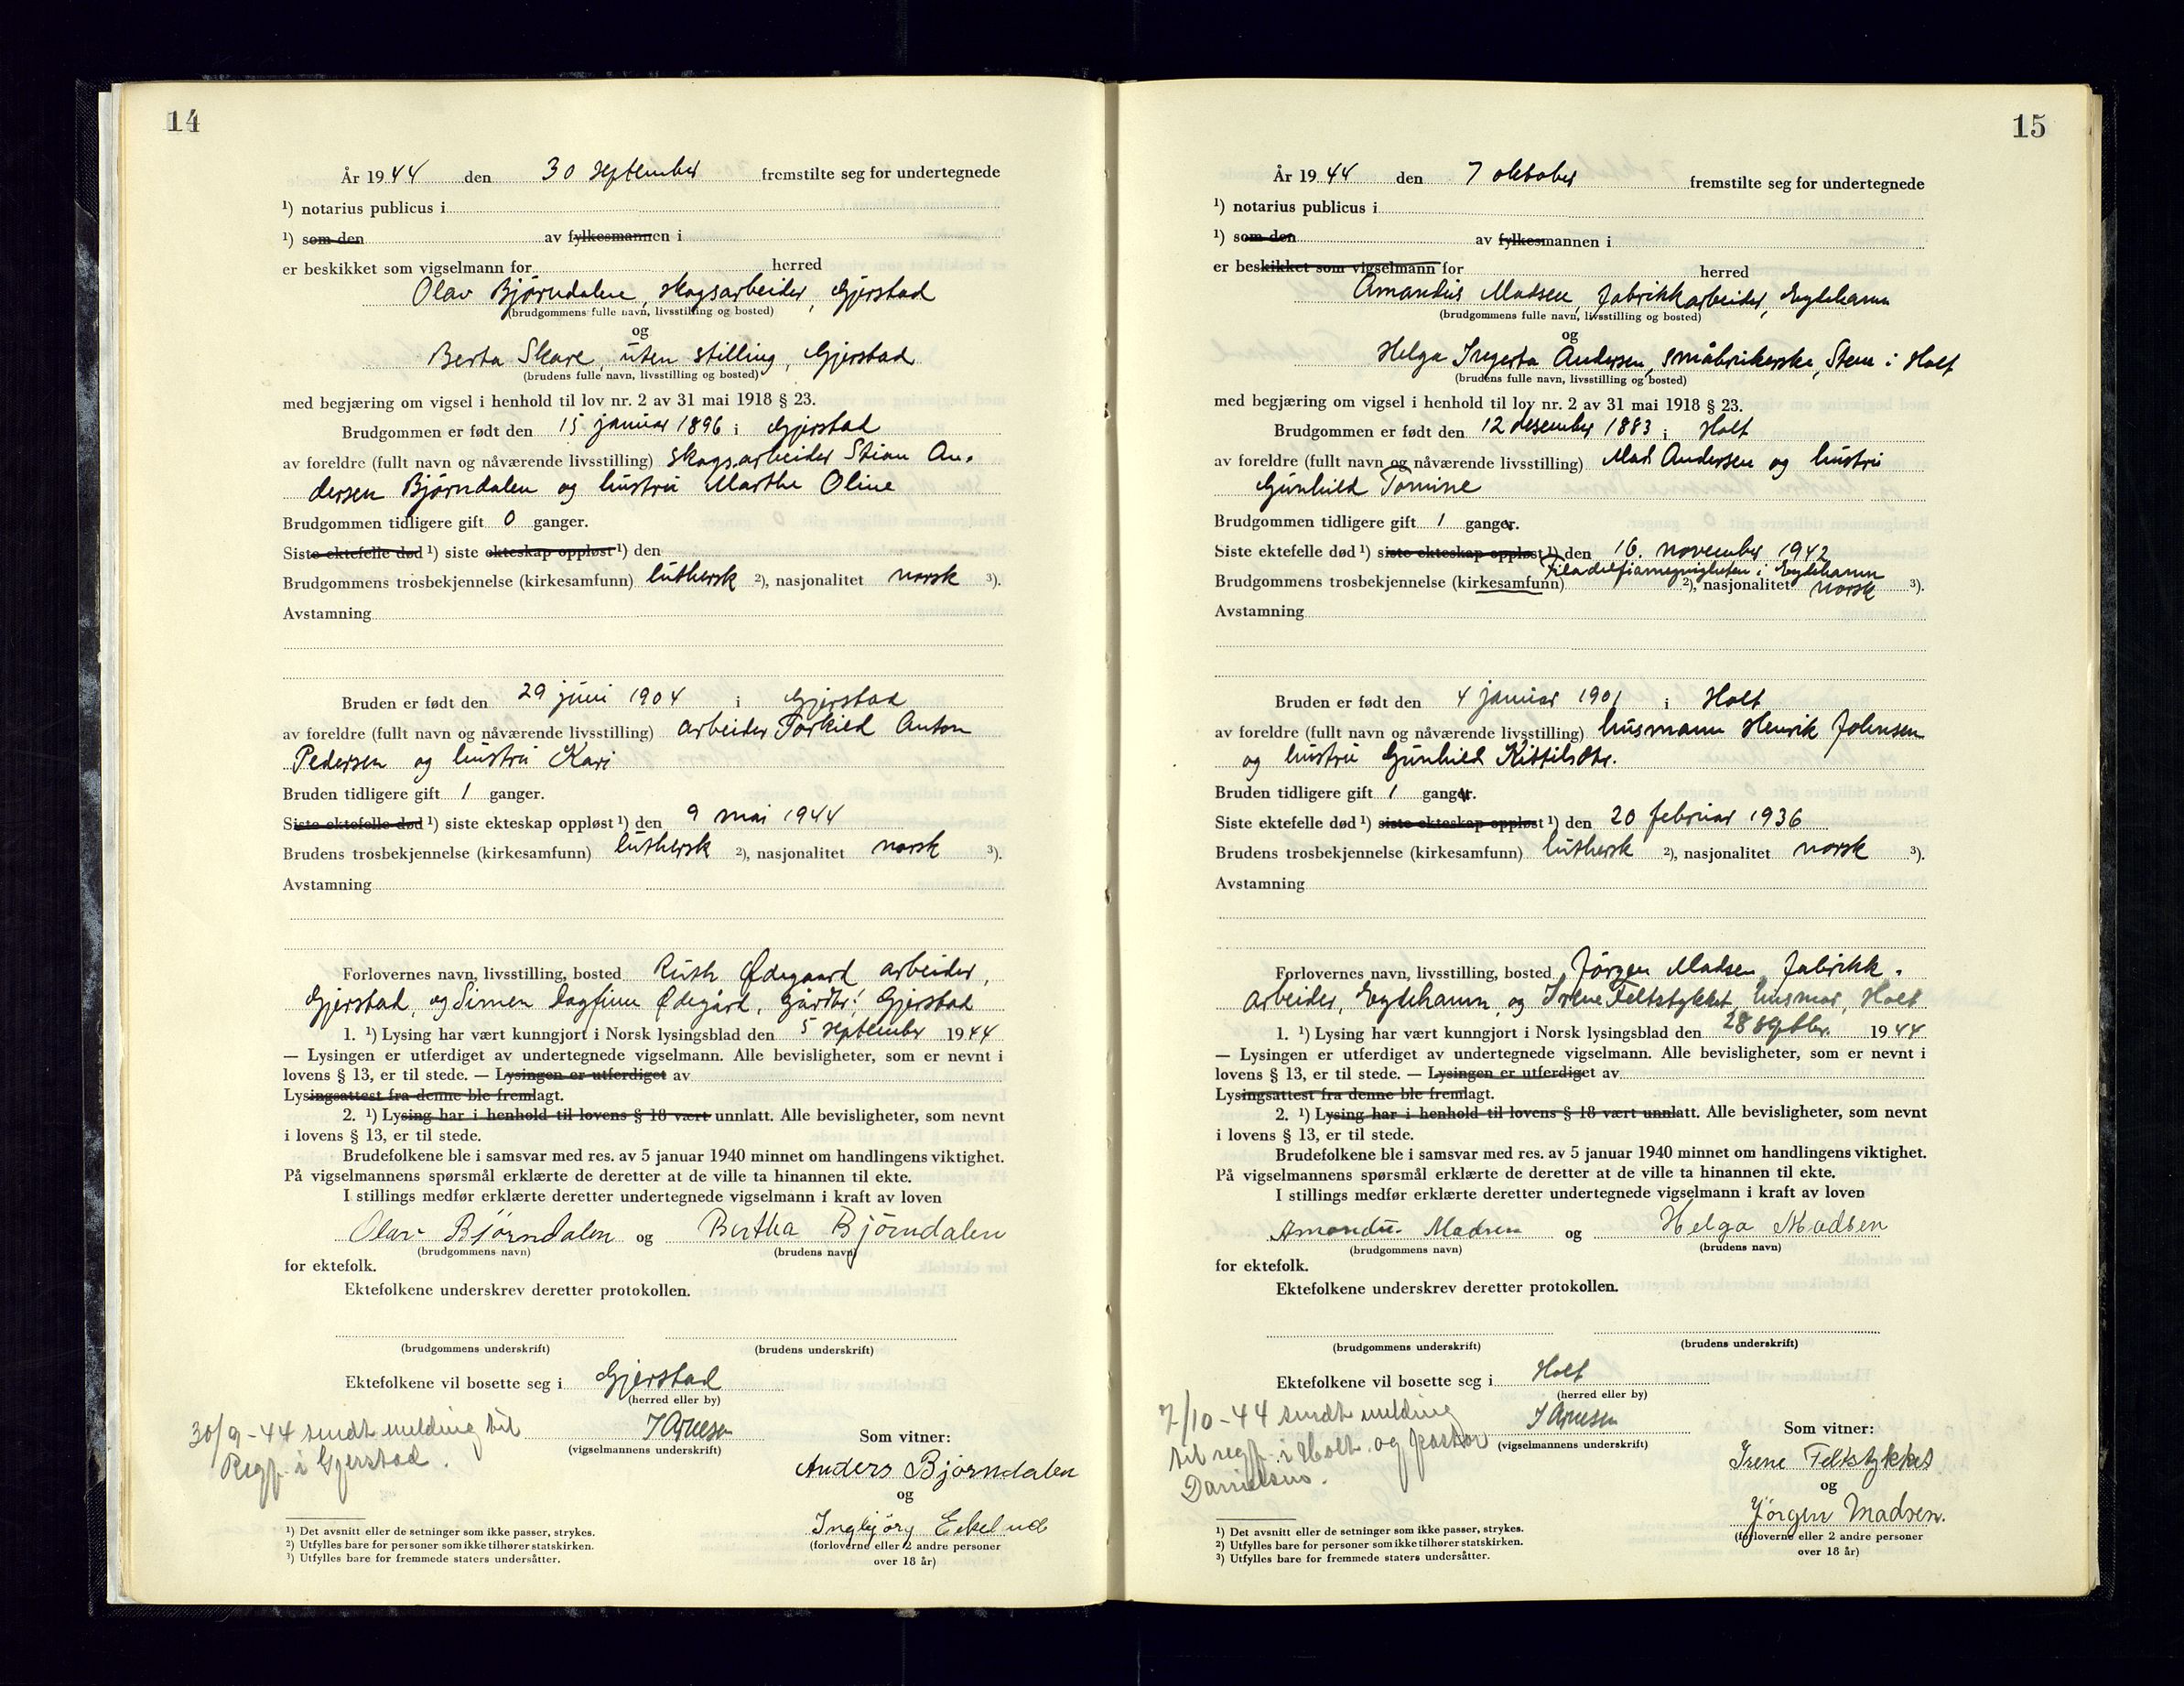 14
År 1944 den 30 september fremstilte seg for undertegnede
¹) notarius publicus i
¹) som den av fylkesmannen i
er beskikket som vigselmann for herred
Olav Bjørndalen, skogsarbeider, Gjerstad
(brudgommens fulle navn, livsstilling og bosted)
og
Berta Skare, uten stilling, Gjerstad
(brudens fulle navn, livsstilling og bosted)
med begjæring om vigsel i henhold til lov nr. 2 av 31 mai 1918 § 23.
Brudgommen er født den 15 januar 1896 i Gjerstad
av foreldre (fullt navn og nåværende livsstilling) skogsarbeider Stian An-
dersen Bjørndalen og hustru Marthe Oline
Brudgommen tidligere gift 0 ganger.
Siste ektefelle død ¹) siste ekteskap oppløst ¹) den
Brudgommens trosbekjennelse (kirkesamfunn) luthersk ²), nasjonalitet norsk ³).
Avstamning
Bruden er født den 29 juni 1904 i Gjerstad
av foreldre (fullt navn og nåværende livsstilling) arbeider Torkild Anton
Pedersen og hustru Kari
Bruden tidligere gift 1 ganger.
Siste ektefelle død ¹) siste ekteskap oppløst ¹) den 9 mai 1944
Brudens trosbekjennelse (kirkesamfunn) luthersk ²), nasjonalitet norsk ³).
Avstamning
Forlovernes navn, livsstilling, bosted Ruth Ødegaard arbeider,
Gjerstad, og Simen Dagfinn Ødegård, gårdbr. Gjerstad
1. ¹) Lysing har vært kunngjort i Norsk lysingsblad den 5 september 1944
— Lysingen er utferdiget av undertegnede vigselmann. Alle bevisligheter, som er nevnt i
lovens § 13, er til stede. — Lysingen er utferdiget av
Lysingsattest fra denne ble fremlagt.
2. ¹) Lysing har i henhold til lovens § 18 vært unnlatt. Alle bevisligheter, som nevnt
i lovens § 13, er til stede.
Brudefolkene ble i samsvar med res. av 5 januar 1940 minnet om handlingens viktighet.
På vigselmannens spørsmål erklærte de deretter at de ville ta hinannen til ekte.
I stillings medfør erklærte deretter undertegnede vigselmann i kraft av loven
Olav Bjørndalen og Bertha Bjørndalen
(brudgommens navn) (brudens navn)
for ektefolk.
Ektefolkene underskrev deretter protokollen.
(brudgommens underskrift) (brudens underskrift)
Ektefolkene vil bosette seg i Gjerstad
(herred eller by)
30/9-44 sendt melding til
Regf. i Gjerstad.
J Arnesen
(vigselmannens underskrift)
Som vitner:
Anders Bjørndalen
og
Ingbjørg Eikelund
(forloverne eller 2 andre personer
over 18 år)
¹) Det avsnitt eller de setninger som ikke passer, strykes.
²) Utfylles bare for personer som ikke tilhører statskirken.
³) Utfylles bare for fremmede staters undersåtter.
15
År 1944 den 7 oktober fremstilte seg for undertegnede
¹) notarius publicus i
¹) som den av fylkesmannen i
er beskikket som vigselmann for herred
Amandus Madsen, fabrikkarbeider, Eydehavn
(brudgommens fulle navn, livsstilling og bosted)
og
Helga Ingerta Andersen, småbrukerske, Stene i Holt
(brudens fulle navn, livsstilling og bosted)
med begjæring om vigsel i henhold til lov nr. 2 av 31 mai 1918 § 23.
Brudgommen er født den 12 desember 1883 i Holt
av foreldre (fullt navn og nåværende livsstilling) Mads Andersen og hustru
Gunhild Tomine
Brudgommen tidligere gift 1 ganger.
Siste ektefelle død ¹) siste ekteskap oppløst ¹) den 16. november 1942
Filadelfiamenigheten i Eydehavn
Brudgommens trosbekjennelse (kirkesamfunn) ²), nasjonalitet norsk ³).
Avstamning
Bruden er født den 4 januar 1901 i Holt
av foreldre (fullt navn og nåværende livsstilling) husmann Henrik Johnsen
og hustru Gunhild Kittilsdtr.
Bruden tidligere gift 1 ganger.
Siste ektefelle død ¹) siste ekteskap oppløst ¹) den 20 februar 1936
Brudens trosbekjennelse (kirkesamfunn) luthersk ²), nasjonalitet norsk ³).
Avstamning
Forlovernes navn, livsstilling, bosted Jørgen Madsen, fabrikk-
arbeider, Eydehavn, og Irene Feltstykket, husmor, Holt
1. ¹) Lysing har vært kunngjort i Norsk lysingsblad den 28 septbr. 1944
— Lysingen er utferdiget av undertegnede vigselmann. Alle bevisligheter, som er nevnt i
lovens § 13, er til stede. — Lysingen er utferdiget av
Lysingsattest fra denne ble fremlagt.
2. ¹) Lysing har i henhold til lovens § 18 vært unnlatt. Alle bevisligheter, som nevnt
i lovens § 13, er til stede.
Brudefolkene ble i samsvar med res. av 5 januar 1940 minnet om handlingens viktighet.
På vigselmannens spørsmål erklærte de deretter at de ville ta hinannen til ekte.
I stillings medfør erklærte deretter undertegnede vigselmann i kraft av loven
Amandus Madsen og Helga Madsen
(brudgommens navn) (brudens navn)
for ektefolk.
Ektefolkene underskrev deretter protokollen.
(brudgommens underskrift) (brudens underskrift)
Ektefolkene vil bosette seg i Holt
(herred eller by)
7/10-44 sendt melding
til regf. i Holt og pastor
Danielsen.
J Arnesen
(vigselmannens underskrift)
Som vitner:
Irene Feltstykket
og
Jørgen Madsen.
(forloverne eller 2 andre personer
over 18 år)
¹) Det avsnitt eller de setninger som ikke passer, strykes.
²) Utfylles bare for personer som ikke tilhører statskirken.
³) Utfylles bare for fremmede staters undersåtter.